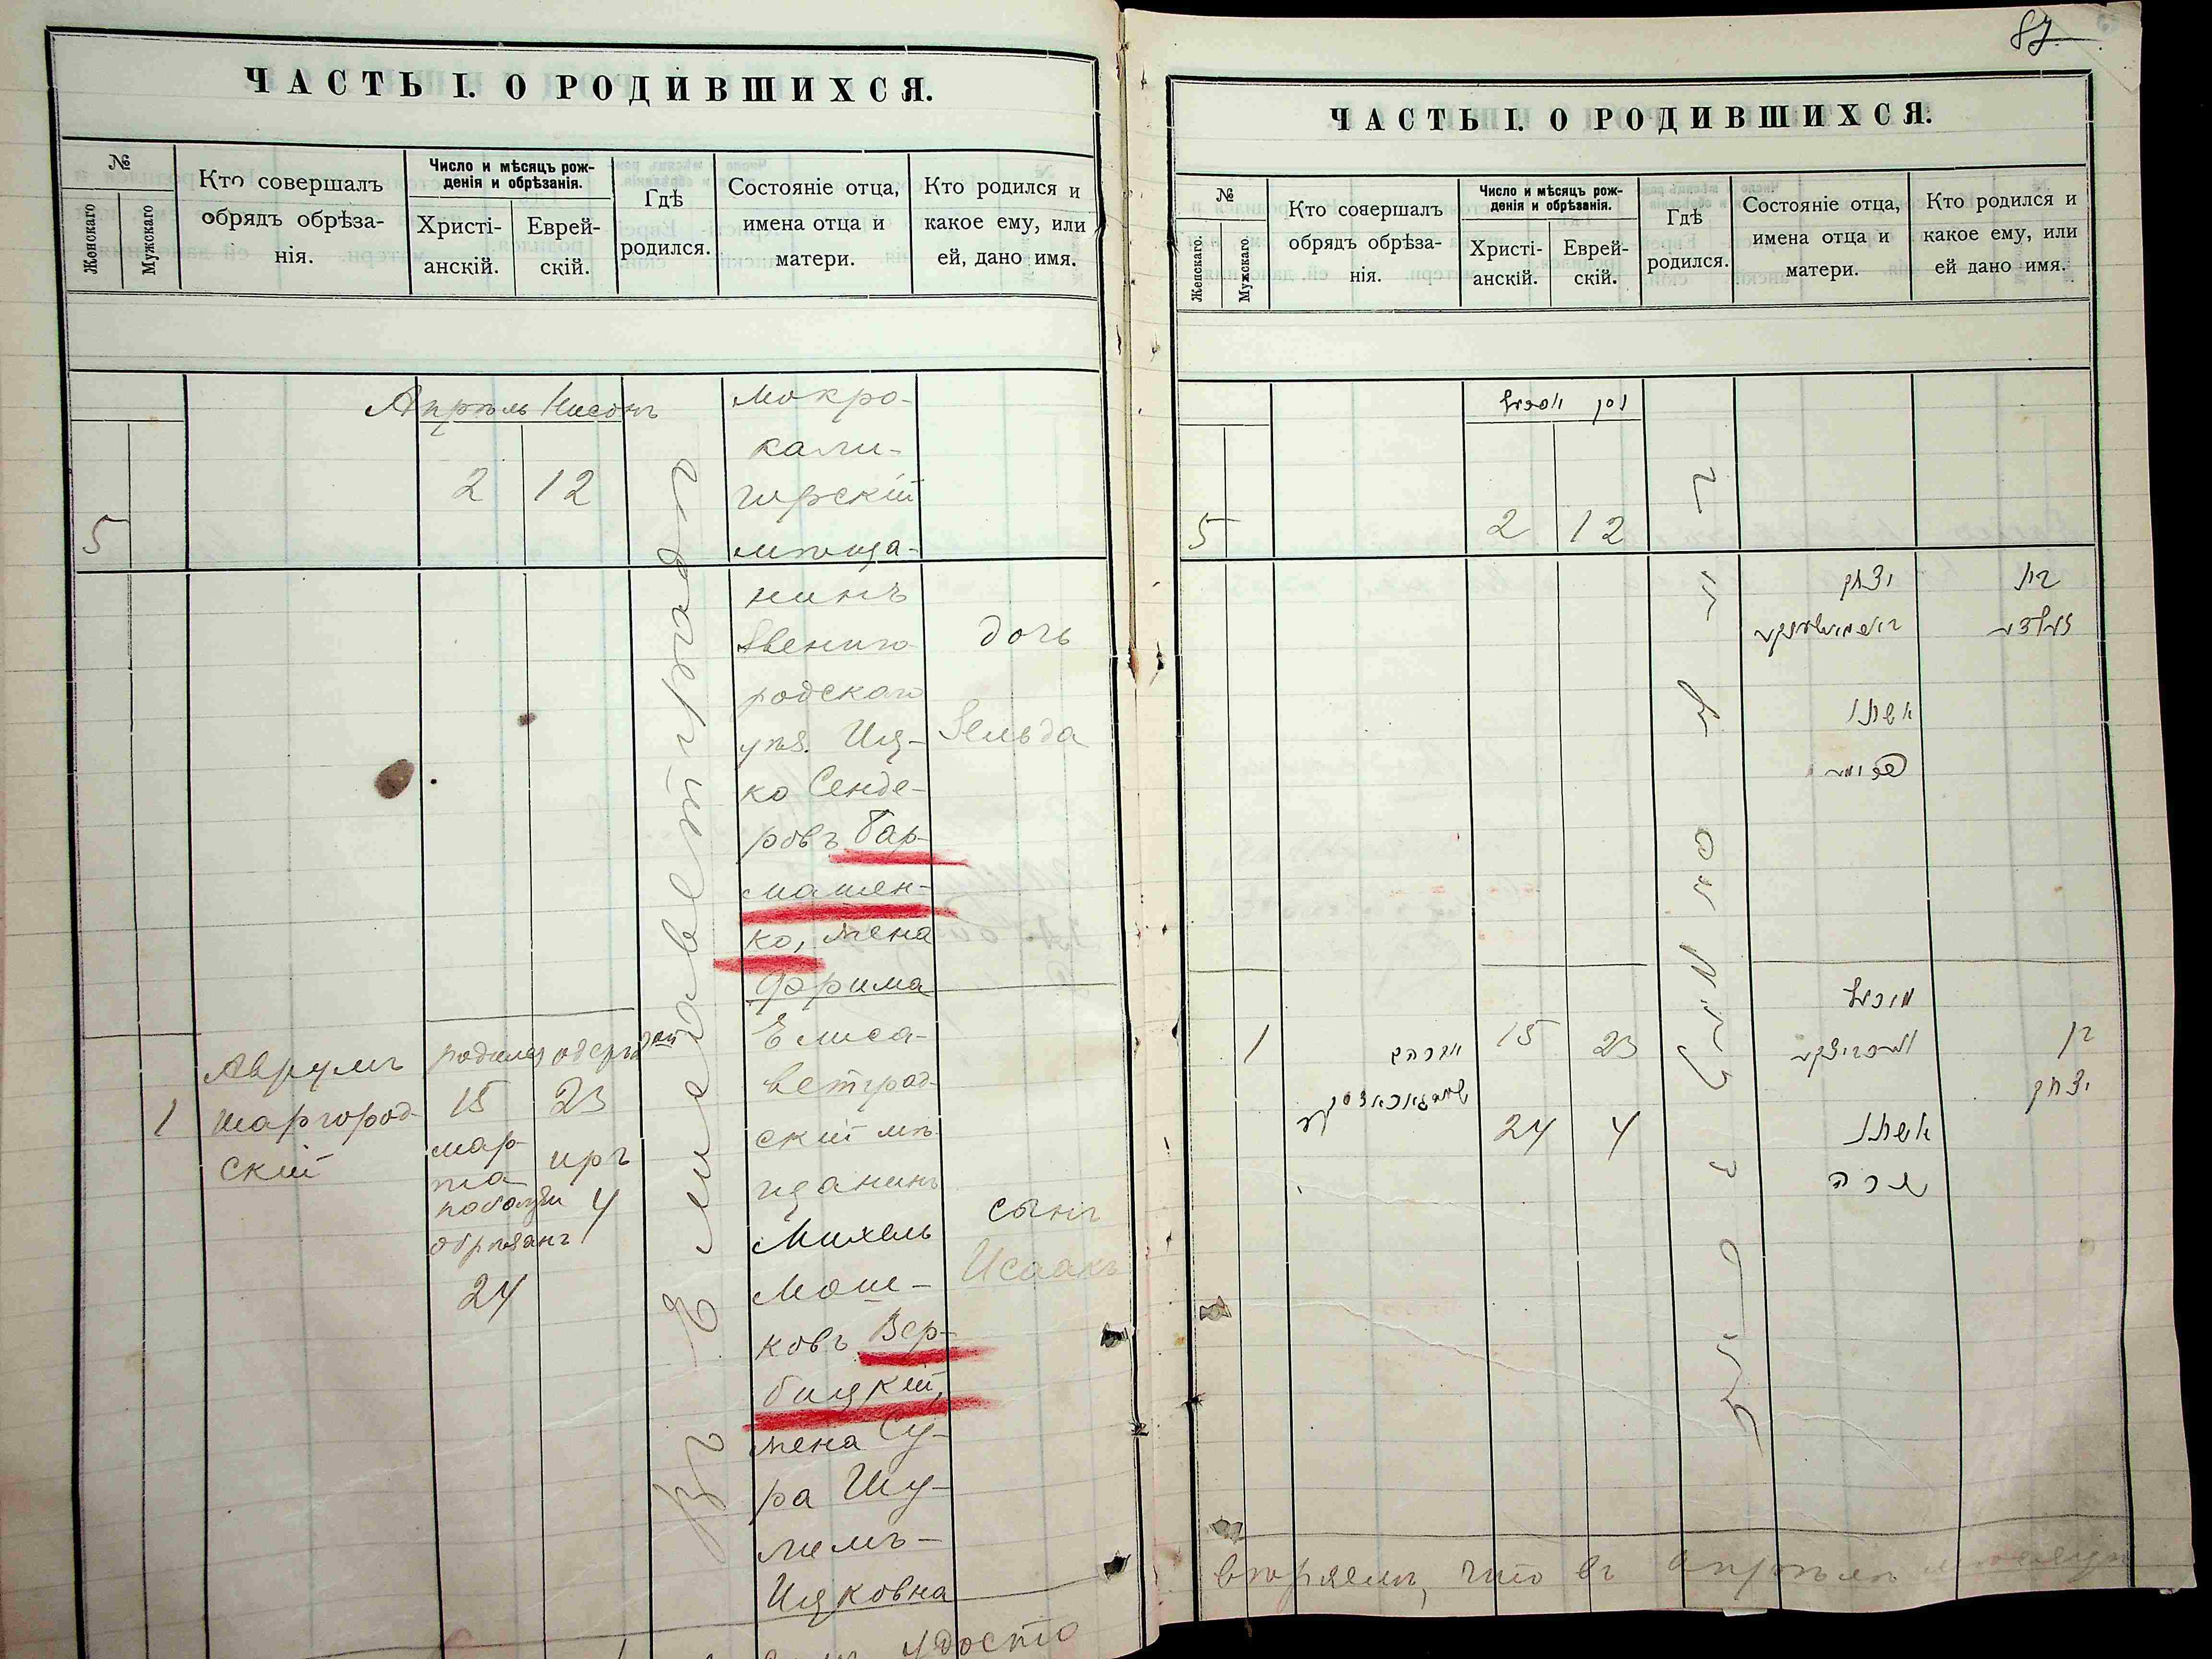 ЧАСТЬ I. О РОДИВШИХСЯ.
№
Женскаго
Мужскаго
Кто совершалъ
обрядъ обрѣза-
нія.
Число и мѣсяцъ рож-
денія и обрѣзанія.
Христі-
анскій.
Еврей-
скій.
Гдѣ
родился.
Состояніе отца,
имена отца и
матери.
Кто родился и
какое ему, или
ей, дано имя.
Апрѣль Нисонъ
5
2
12
Въ Елисаветградѣ
Мокро-
кали-
горскій
мѣща-
нинъ
Звениго-
родскаго
уѣз. Иц-
ко Сенде-
ровъ Бар-
машен-
ко, жена
Фрима
дочь
Зельда
1
Аврумъ
Шаргород-
скій
родился
15
мар-
та
обрѣзанъ
24
23
4
Елиса-
ветград-
скій мѣ-
щанинъ
Михель
Мош-
ковъ Вер-
бицкій,
жена Су-
ра Шу-
лимъ-
Ицковна
сынъ
Исаакъ
удосто
87
ЧАСТЬ I. О РОДИВШИХСЯ.
№
Женскаго.
Мужскаго.
Кто совершалъ
обрядъ обрѣза-
нія.
Число и мѣсяцъ рож-
денія и обрѣзанія.
Христі-
анскій.
Еврей-
скій.
Гдѣ
родился.
Состояніе отца,
имена отца и
матери.
Кто родился и
какое ему, или
ей дано имя.
אפריל ניסן
5
2
12
יצחק
אשתו
פרומא
בת
זעלדא
1
אברהם
15
23
24
4
מיכאל
ווערביצקי
אשתו
שרה
בן
יצחק
вѣряемъ, что въ апрѣлѣ мѣсяцѣ